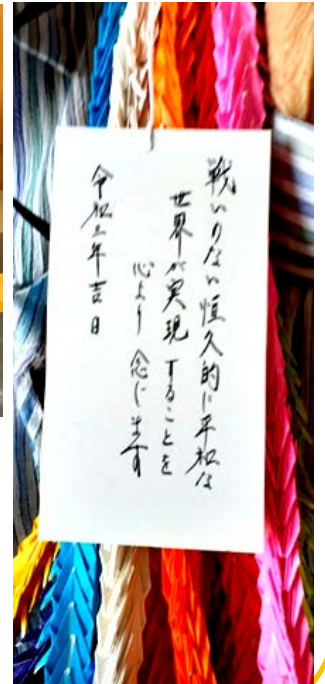 戦いのない恒久的に平和な
世界が実現することを
心より念じます
令和三年吉日